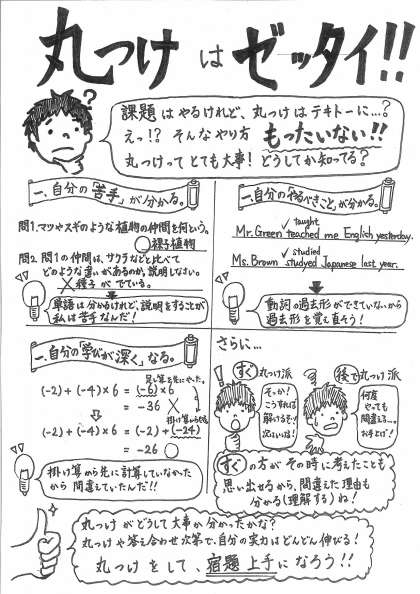 丸つけはゼッタイ!!
?
課題はやるけれど、丸つけはテキトーに…?
えっ!? そんなやり方 もったいない!!
丸つけってとても大事!どうしてか知ってる?
一、自分の「苦手」が分かる。
問1.マツやスギのような植物の仲間を何という。
裸子植物
問2. 問1の仲間は、サクラなどと比べて
どのような違いがあるのか。説明しなさい。
種子がでている。
単語は分かるけれど、説明をすることが
私は苦手なんだ!
一、自分のやるべきこと、が分かる。
taught
Mr. Green teached me English yesterday.
studied
Ms. Brown studyed Japanese last year.
動詞の過去形ができていないから
過去形を覚え直そう!
一、自分の「学び」が「深く」なる。
足し算を先にやった。
(-2)+(-4)×6 = (-6)×6
= -36
掛け算から先
(-2)+(-4)×6 = (-2)+(-24)
= -26
掛け算から先に計算していなかった
から間違えていたんだ!!
さらに…
!
すぐ丸つけ派
そっか!
こうすれば
解けるぞ!
次はいいね!
後で丸つけ派
何度
やっても
間違える…。
お手上げ!
すぐの方がその時に考えたことも
思い出せるから、間違えた理由も
分かる(理解する)ね!
丸つけがどうして大事か分かったかな?
丸つけや答え合わせ次第で、自分の実力はどんどん伸びる!
丸つけをして、宿題上手になろう!!